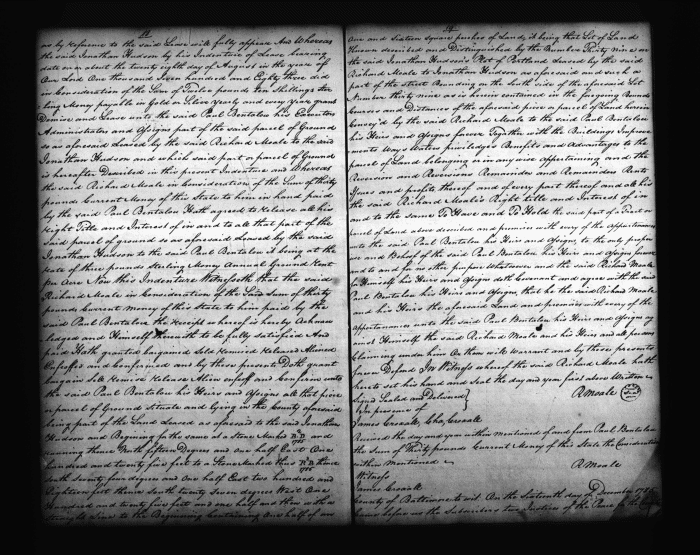 as by reference to the said Lease will fully appear And Whereas
the said Jonathan Hudson by his Indenture of Lease bearing
date on or about the twenty eighth day of August in the year of
Our Lord One thousand Seven hundred and Eighty three did
in Consideration of the Sum of Twelve pounds ten shillings Ster
ling Money payable in Gold or Silver Yearly and every Year grant
Demise and Lease unto the said Paul Bentalou his Executors
Administrators and Assigns part of the said parcel of Ground
so as aforesaid Leased by the said Richard Moale to the said
Jonathan Hudson and which said part or parcel of Ground
is hereafter Described in this present Indenture and Whereas
the said Richard Moale in Consideration of the Sum of thirty
pounds Current Money of this State to him in hand paid
by the said Paul Bentalou Hath agreed to release all his
Right Title and Interest of in and to all that part of the
said parcel of ground so as aforesaid Leased by the said
Jonathan Hudson to the said Paul Bentalou it being at the
rate of three pounds Sterling Money Annual Ground Rent
per Acre Now this Indenture Witnesseth that the said
Richard Moale in Consideration of the said Sum of thirty
pounds Current money of this State to him paid by the
said Paul Bentalou the receipt whereof is hereby Acknow
ledged and himself therewith to be fully satisfied And
paid Hath granted bargained Sold Remised Released Aliened
Enfeoffed and Confirmed and by these presents Doth grant
bargain Sell Remise Release Alien enfeoff and Confirm unto
the said Paul Bentalou his Heirs and Assigns all that piece
or parcel of Ground Situate and lying in the County aforesaid
being part of the Land Leased as aforesaid to the said Jonathan
Hudson and Beginning for the same at a Stone Marked and
running thence North fifteen Degrees and one half East One
hundred and twenty five feet to a Stone Marked thus thence
South Seventy four degrees and one half East two hundred and
Eighteen feet thence South twenty Seven degrees West One
hundred and twenty five feet and one half and then with a
straight Line to the Beginning Containing One half of an
One and Sixteen Square perches of Land, it being that Lot of Land
Known described and Distinguished by the Number Thirty nine on
the said Jonathan Hudson's Plot of Portland Leased by the said
Richard Moale to Jonathan Hudson as aforesaid and such a
part of the Street Running on the North side of the aforesaid Lot
Number thirty nine as is by or contained in the foregoing Bounds
Courses and Distances of the aforesaid piece or parcel of Land herein
Convey'd by the said Richard Moale to the said Paul Bentalou
his Heirs and Assigns forever Together with the Buildings Improve
ments Ways Waters priviledges Benefits and Advantages to the
parcel of Land belonging or in any wise appertaining and the
Reversion and Reversions Remainder and Remainders Rents
Issues and profits thereof and of every part thereof and all his
the said Richard Moale's Right title and Interest of in
and to the same To Have and To Hold the said part of a Tract or
parcel of Land above described and premises with every of the Appurtenances
unto the said Paul Bentalou his Heirs and Assigns, to the only proper
use and Behoof of the said Paul Bentalou his Heirs and Assigns forever
and to and for no other purpose Whatsoever and the said Richard Moale
for himself his Heirs and Assigns doth Covenant and agree with the said
Paul Bentalou his Heirs and Assigns, that he the said Richard Moale
and his Heirs the aforesaid Land and premises with every of the
Appurtenances unto the said Paul Bentalou his Heirs and Assigns ag
ainst Himself the said Richard Moale and his Heirs and all persons
Claiming under him Or them will Warrant and by these presents
forever Defend In Witness whereof the said Richard Moale hath
hereto set his hand and Seal the day and year first above Written
Signed Sealed and Delivered
In presence of
R Moale
James Croxall, Cha, Croxall
Received the day and year within mentioned of and from Paul Bentalou
the Sum of thirty pounds Current Money of this State the Consideration
within Mentioned
R Moale
Witness
James Croxall
County of Baltimore to wit. On the Sixteenth day of December
came before us the Subscribers two Justices of the Peace for the